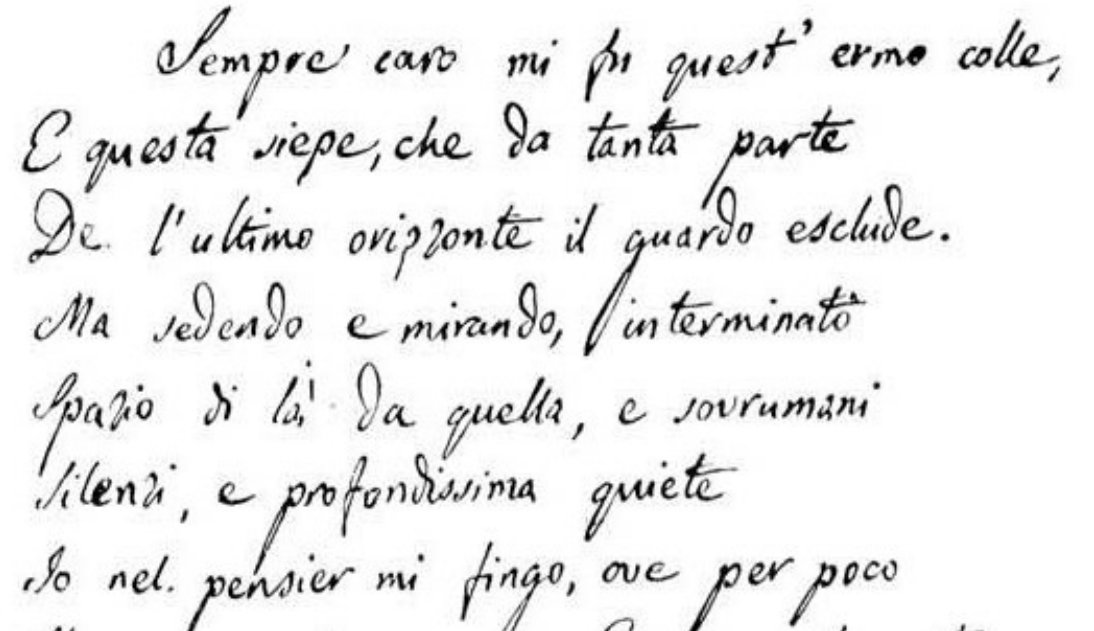 Sempre caro mi fu quest' ermo colle,
E questa siepe, che da tanta parte
De l'ultimo orizzonte il guardo esclude.
Ma sedendo e mirando, interminato
Spazio di là da quella, e sovrumani
Silenzi, e profondissima quiete
Io nel pensier mi fingo, ove per poco